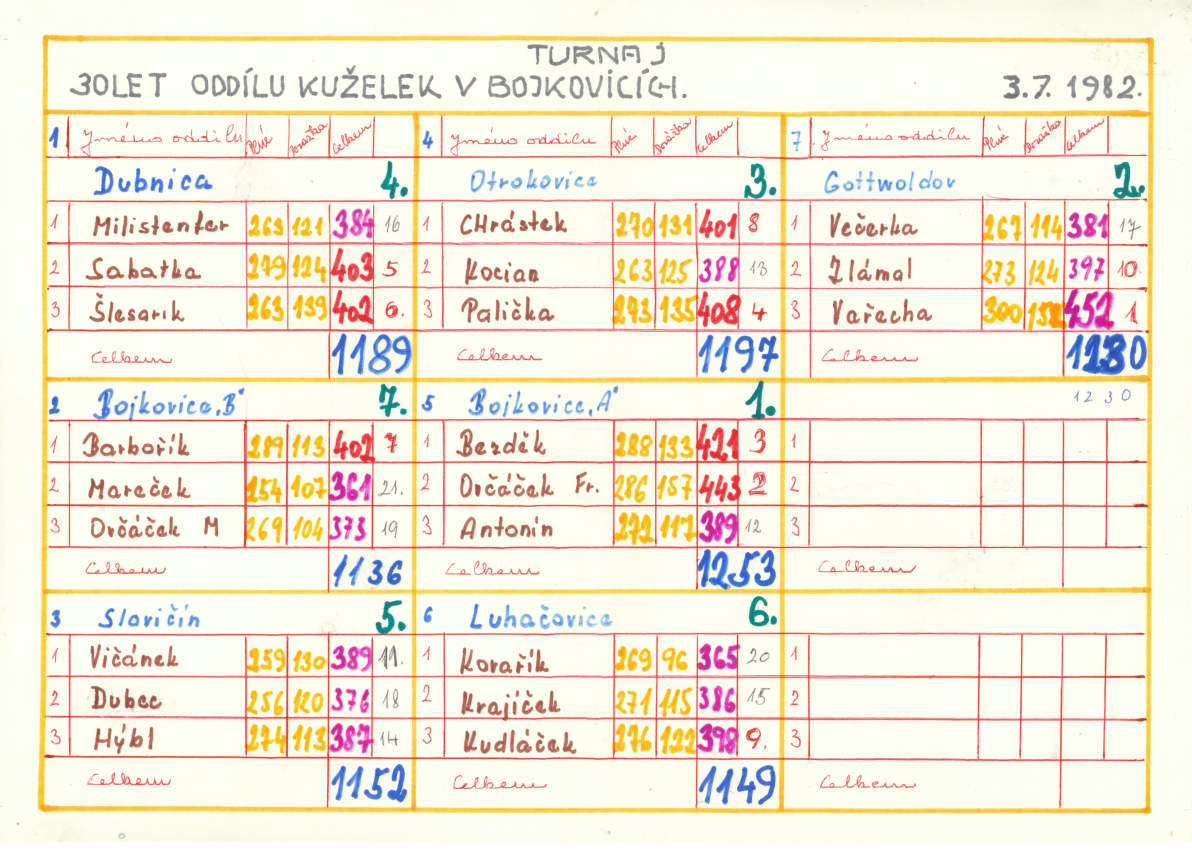 TURNAJ
30LET ODDÍLU KUŽELEK V BOJKOVICÍCH. 3.7. 1982.
1 Jméno oddílu Plné Dorážka Celkem
Dubnica 4.
1 Milistenfer 263 121 384 16
2 Sabatka 279 124 403 5
3 Šlesarik 263 139 402 6.
Celkem 1189
2 Bojkovice „B" 7.
1 Barbořík 289 113 402 7
2 Mareček 254 107 361 21.
3 Ovčáček M 269 104 373 19
Celkem 1136
3 Slavičín 5.
1 Vičánek 259 130 389 11.
2 Dubec 256 120 376 18
3 Hýbl 274 113 387 14
Celkem 1152
4 Jméno oddílu Plné Dorážka Celkem
Otrokovice 3.
1 CHrástek 270 131 401 8
2 Kocian 263 125 388 13
3 Palička 273 135 408 4
Celkem 1197
5 Bojkovice „A" 1.
1 Bezděk 288 133 421 3
2 Ovčáček Fr. 286 157 443 2
3 Antonín 272 117 389 12
Celkem 1253
6 Luhačovice 6.
1 Kovařík 269 96 365 20
2 Krajíček 271 115 386 15
3 Kudláček 276 122 398 9.
Celkem 1149
7 Jméno oddílu Plné Dorážka Celkem
Gottwaldov 2.
1 Večerka 267 114 381 17
2 Zlámal 273 124 397 10.
3 Vařecha 300 152 452 1
Celkem 1230
1230
1
2
3
Celkem
1
2
3
Celkem